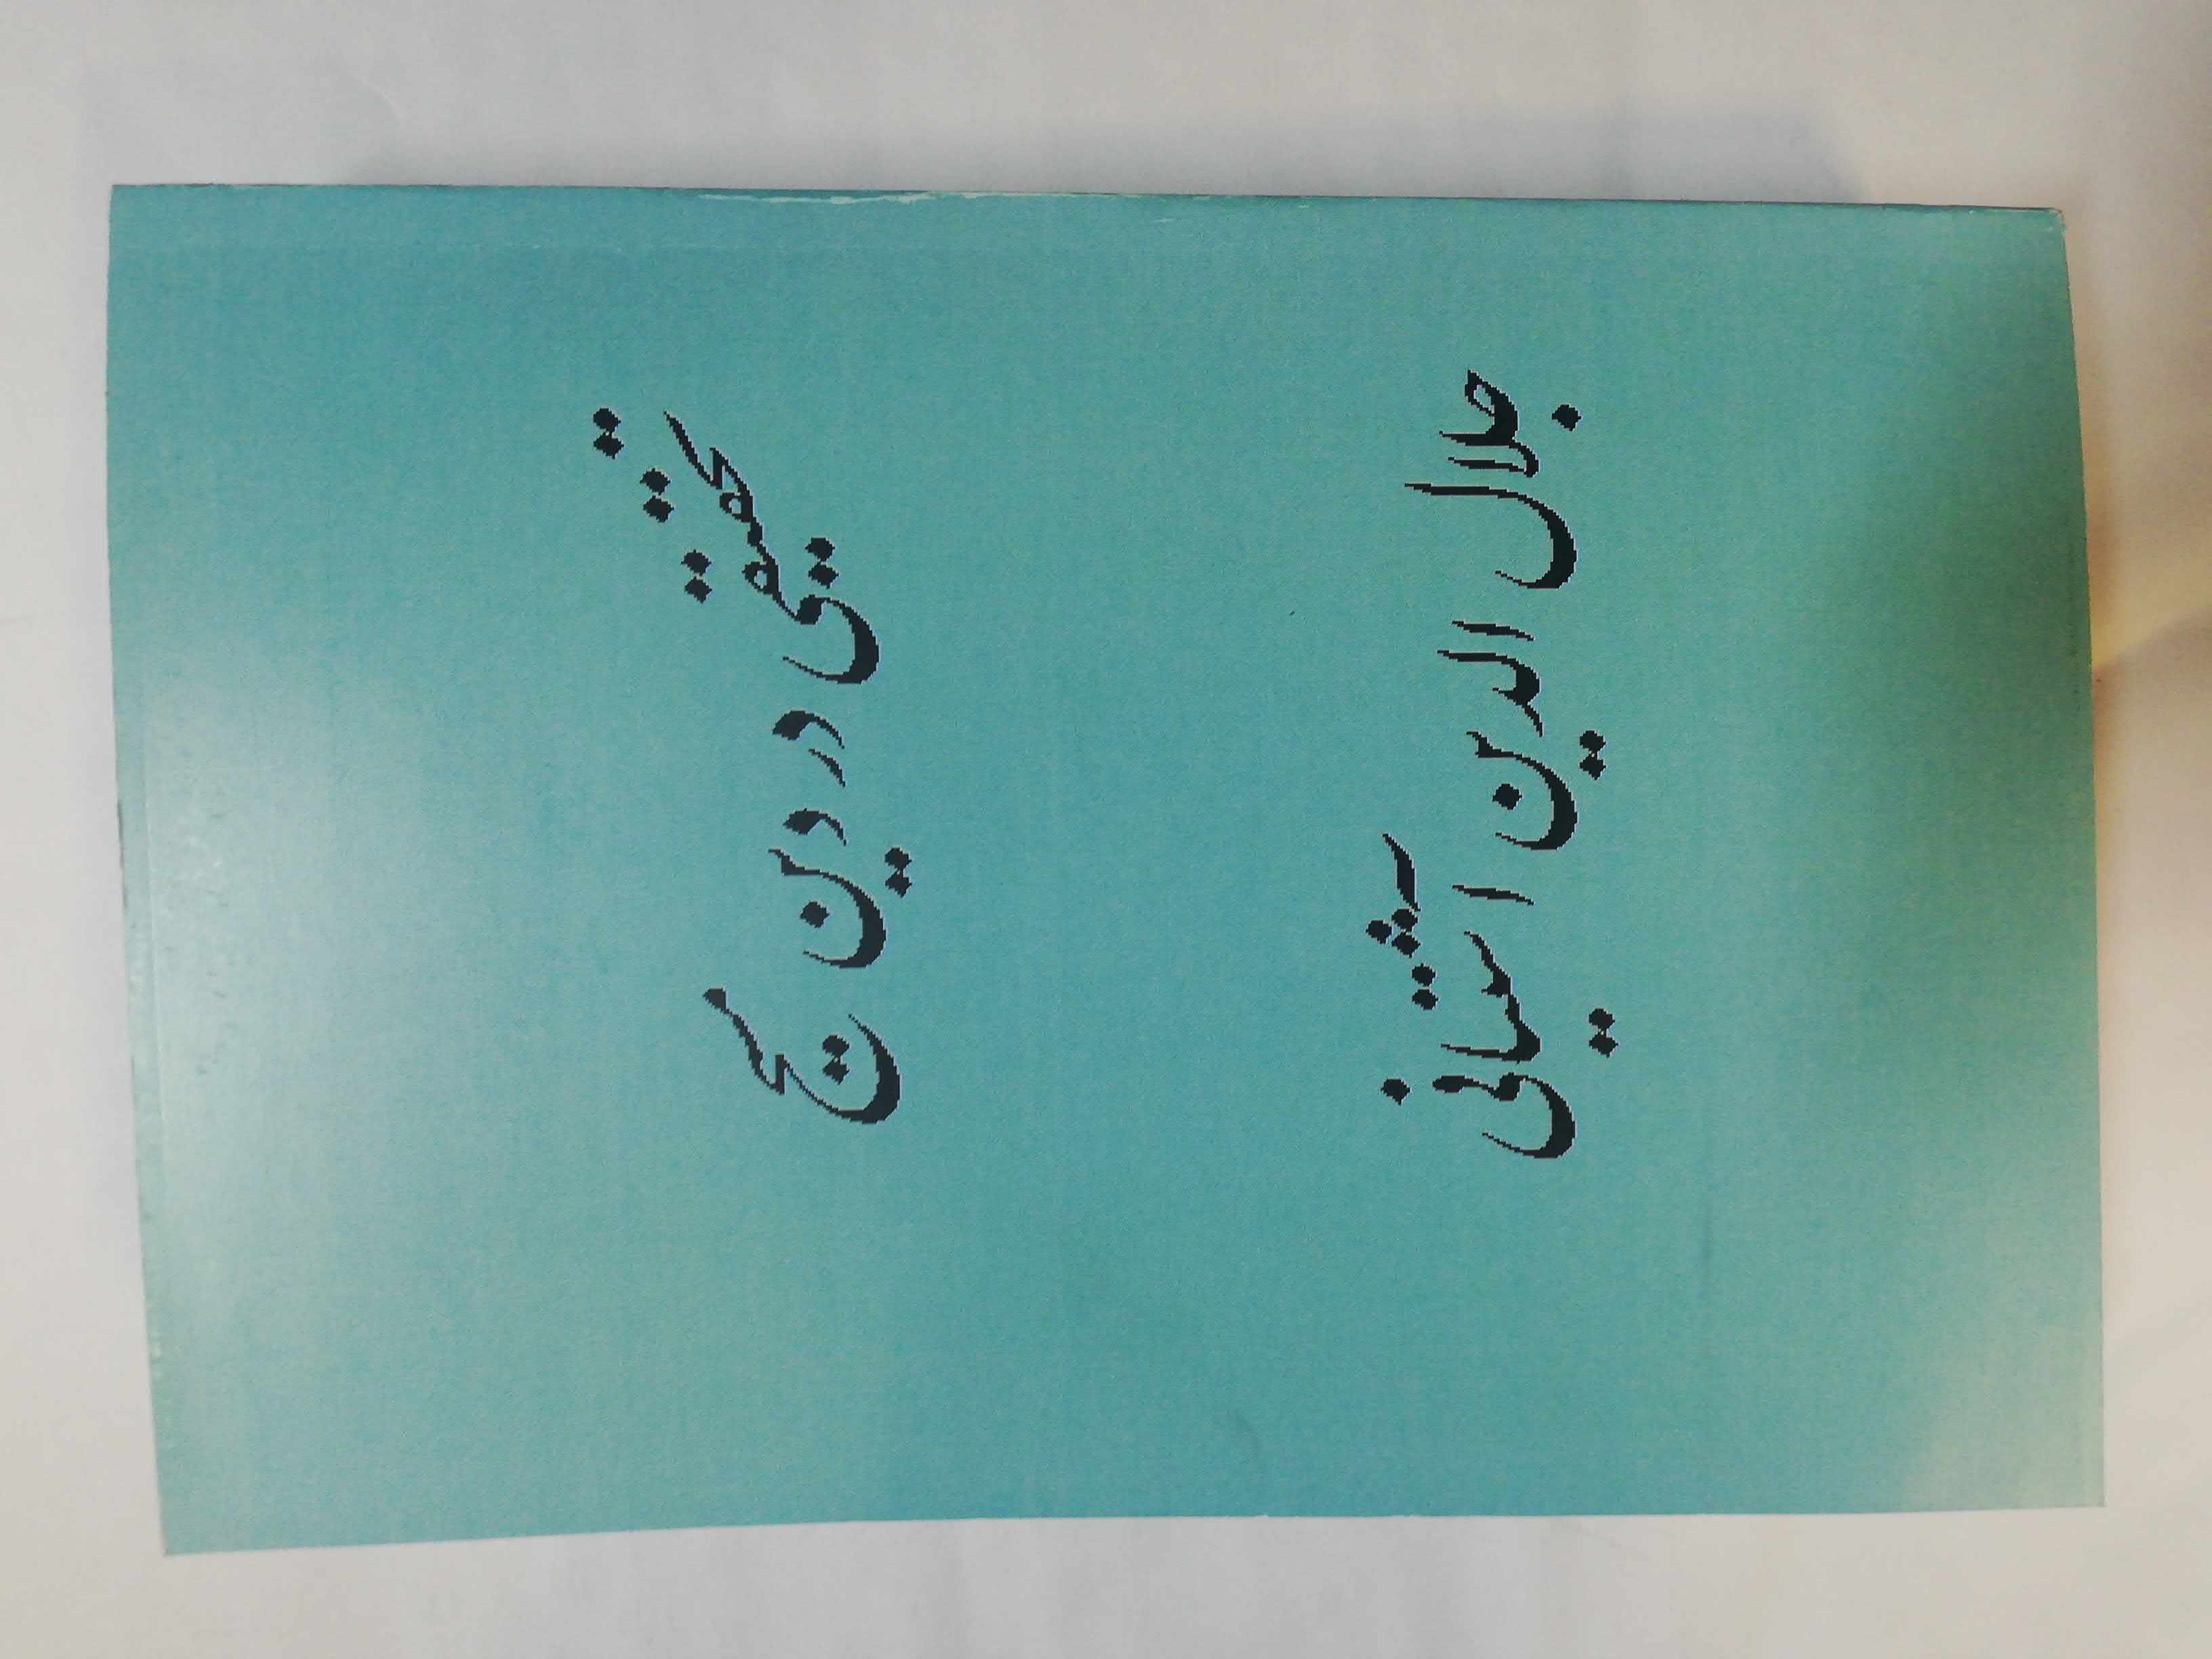 تحقیقی در دین مسیح
جلال الدین آشتیانی